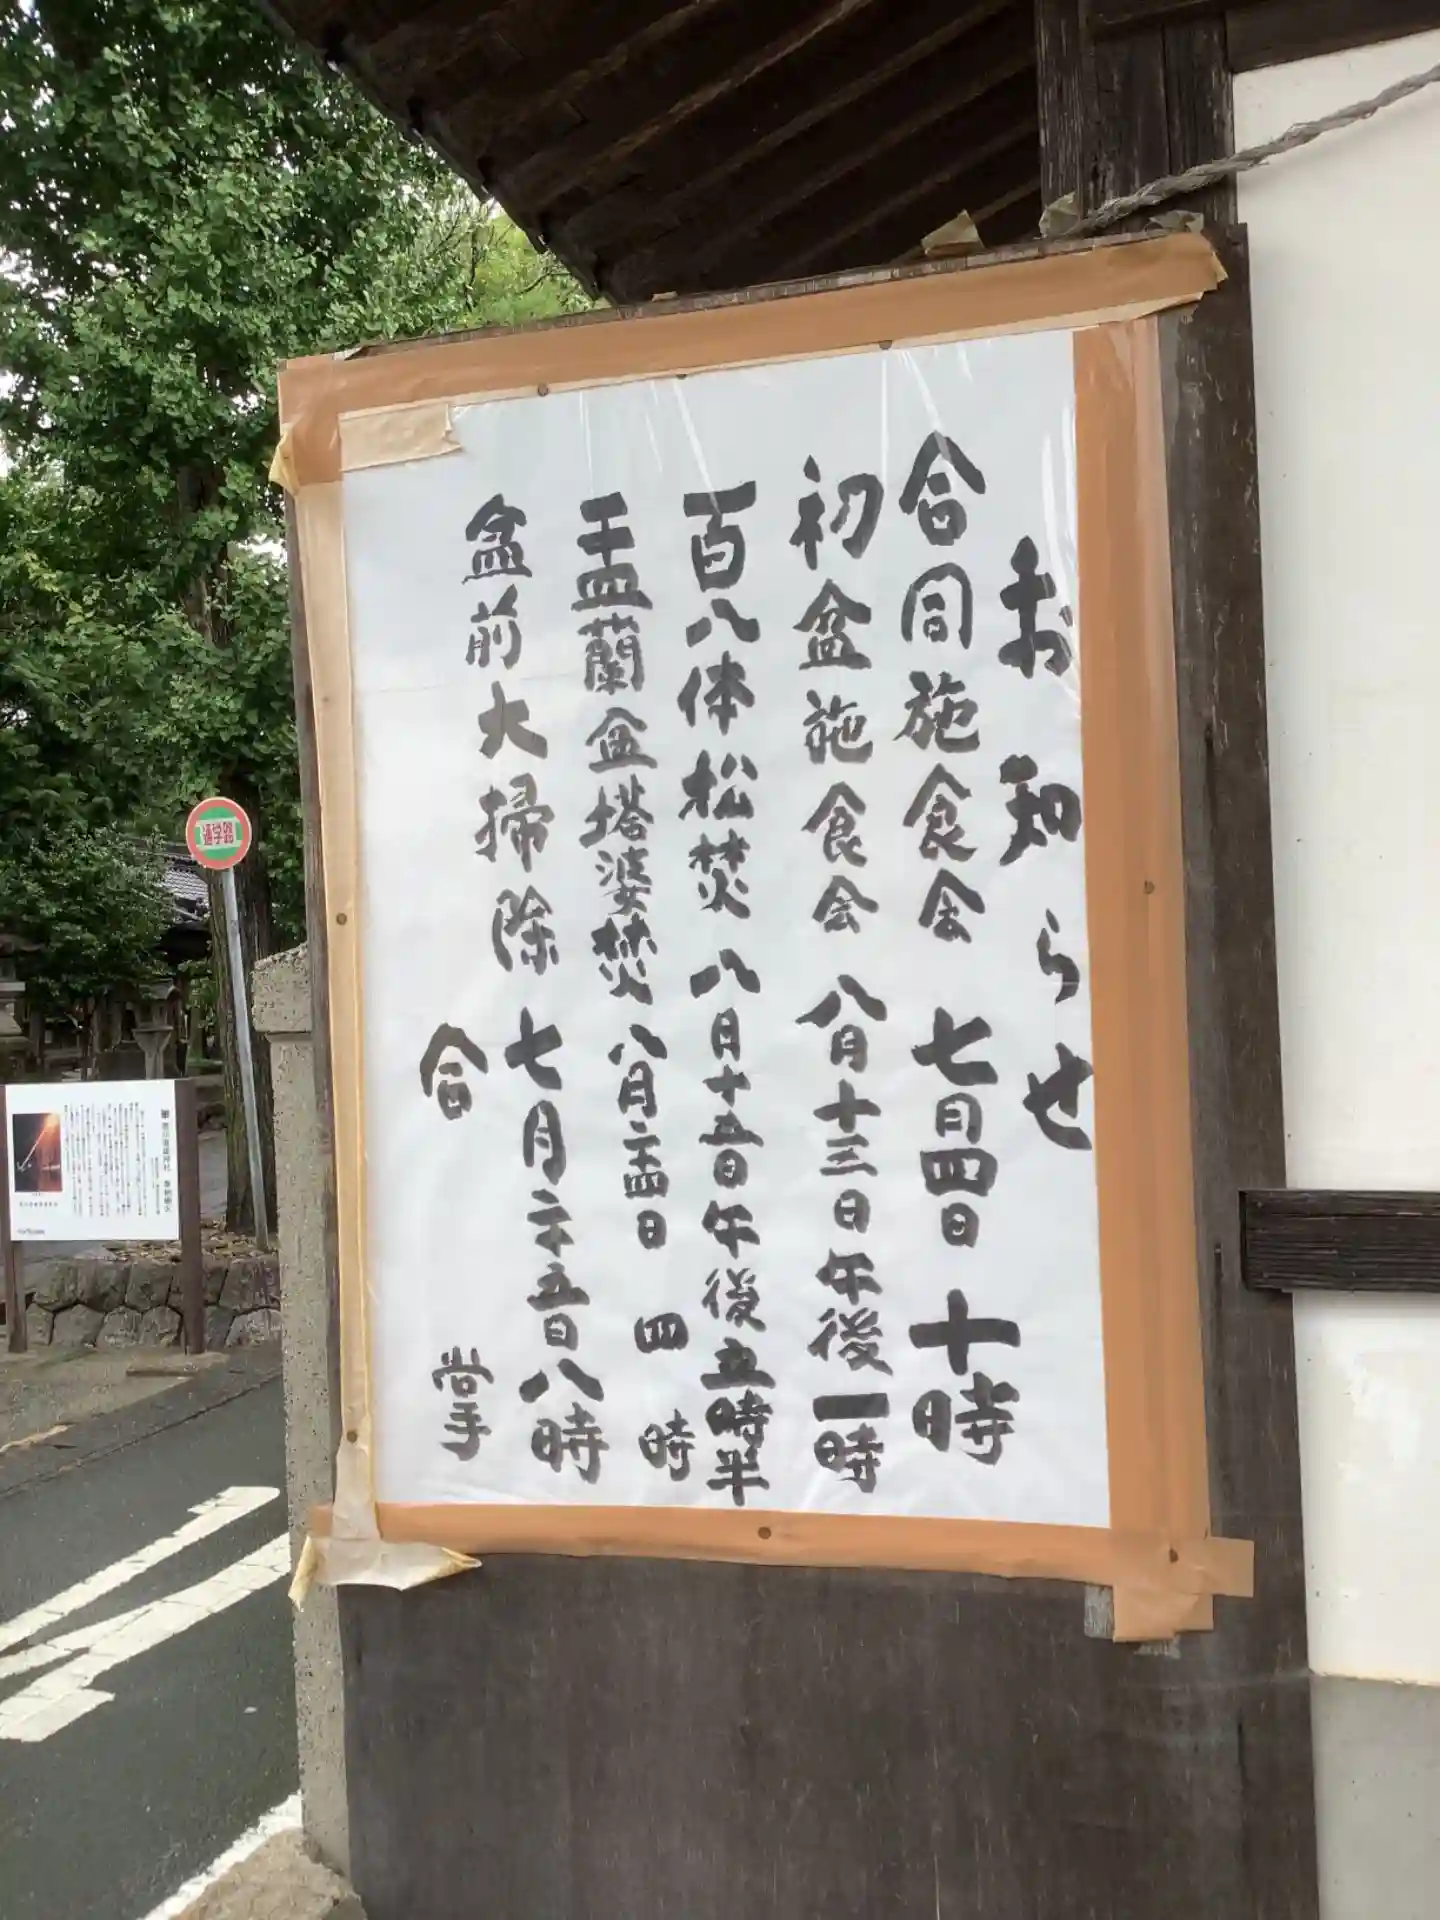 お知らせ
合同施食会 七月四日 十時
初盆施食会 八月十三日午後一時
百八体松焚 八月十五日午後五時半
盂蘭盆塔婆焚 八月二十四日 四時
盆前大掃除 七月二十五日八時
合掌
通学路